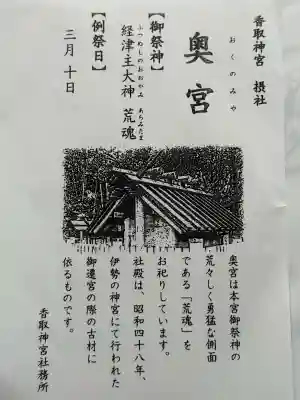 香取神宮 摂社
おくのみや
奥宮
【御祭神】
ふつぬしのおおかみ あらみたま
経津主大神 荒魂
【例祭日】
三月 十日
奥宮は本宮御祭神の
荒々しく勇猛な側面
である「荒魂」を
お祀りしています。
社殿は、昭和四十八年、
伊勢の神宮にて行われた
御遷宮の際の古材に
依るものです。
香取神宮社務所